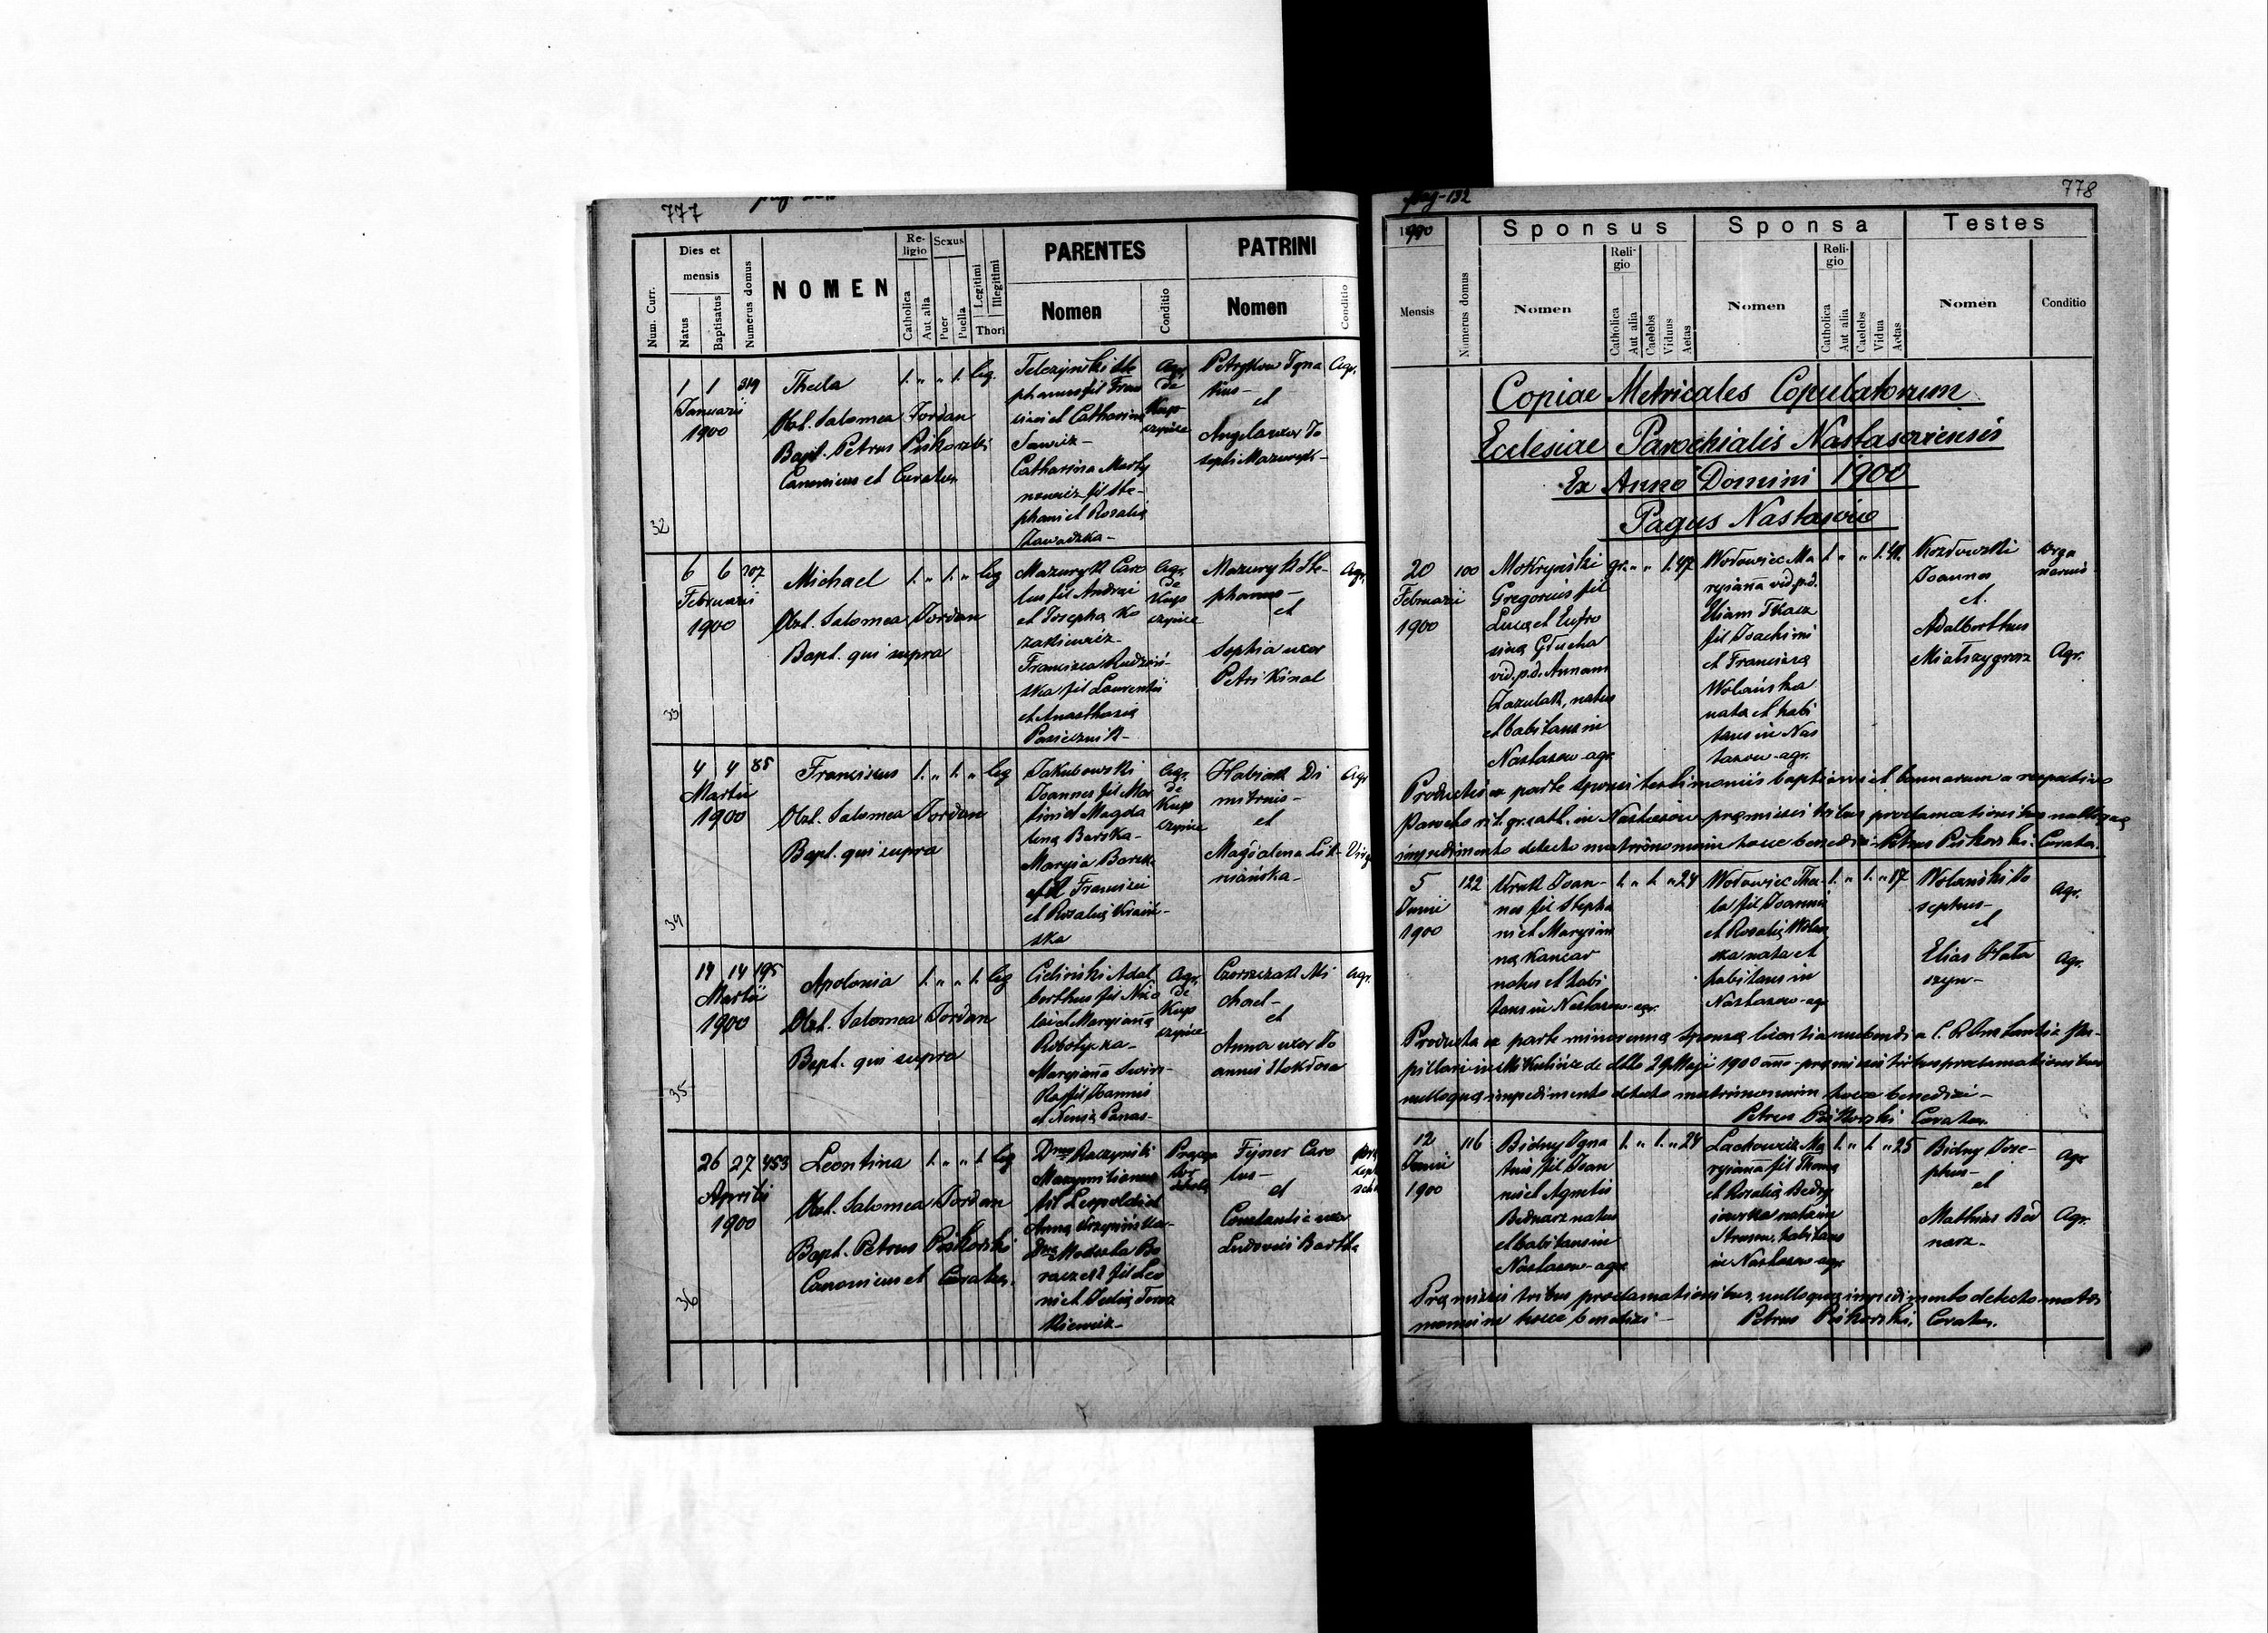 777
Num. Curr.
Dies et mensis
Natus
Baptisatus
Numerus domus
NOMEN
Religio
Catholica
Aut alia
Sexus
Puer
Puella
Legitimi
Illegitimi
Thori
PARENTES
Nomen
Conditio
PATRINI
Nomen
Conditio
32
1 1 319
Januarii
1900
Thecla
Obst. Salomea Jordan
Bapt. Petrus Piskorski
Canonicus et Curatus
1. " " 1. leg.
phanus fil Fran
cisci et Catharina
Catharina Marty
nowicz fil Ste-
phani et Rosalia
Zawadzka-
Agr.
de
Kup
czyńce
Petryków Igna
tius-
et
Angela uxor Jo
sephi Mazuryk-
Agr.
33
6 6 207
Februarii
1900
Michael
Obst. Salomea Jordan
Bapt. qui supra
1. " 1. " leg
Mazuryk Caro
lus fil Andreae
et Josepha Ko
zakiewicz-
Francisca Rudziń-
ska fil Laurentii
et Anasthasia
Pasiecznik-
Agr.
de
Kup
czyńce
Mazuryk Ste-
phanus-
et
Sophia uxor
Petri Kinal
Agr.
34
4 4 85
Martii
1900
Franciscus
Obst. Salomea Jordan
Bapt. qui supra
1. " 1. " leg
Jakubowski
Joannes fil Mar
tini et Magda
lena Barska-
Marysia Barska
fil Francisci
et Rosalia
ska
Agr.
de
Kup
czyńce
Di
mitrius-
et
Magdalena
Agr
Virg
35
14 14 195
Martii
1900
Apolonia
Obst. Salomea Jordan
Bapt. qui supra
1. " " 1. leg
Cieliński Adal
berthus fil Nico
lai et Maryianna
Robotycka-
Maryianna
fil Joannis
et
Agr.
de
Kup
czyńce
Mi
chael-
et
Anna uxor Jo
annis Stokłosa
Agr.
36
26 27 453
Aprilis
1900
Leontina
Obst. Salomea Jordan
Bapt. Petrus Piskorski
Canonicus et Curatus.
1. " " 1. leg
Raczyński
Maxymilianus
fil Leopoldi et
Anna
Modesta Bo
raczek fil Leo
ni et Julia
Fijner Caro
lus-
et
Constantia uxor
Ludovici Bartha
pag-132
778
1900
Mensis
Numerus domus
Sponsus
Nomen
Religio
Catholica
Aut alia
Caelebs
Viduus
Aetas
Sponsa
Nomen
Religio
Catholica
Aut alia
Caelebs
Vidua
Aetas
Testes
Nomen
Conditio
Copiae Metricales Copulatorum
Ecclesiae Parochialis Nastasoviensis
Ex Anno Domini 1900
Pagus Nastasów
20
Februarii
1900
100
Mokrzyński
Gregorius fil
Luca et Eufro
sina Głucha
vid. p.d. Annam
Zazulak, natus
et habitans in
Nastasow-agr.
gr. " " 1. 47
Wołowiec Ma
rysianna vid. p.d.
Eliam Tkacz
fil Joachimi
et Francisca
Wolańska
nata et habi
tans in Nas
tasow-agr.
1. " " 1. 41.
Kozłowski
Joannes
et
Adalberthus
Miotszygrosz
Orga
narius
Agr.
Productis ex parte sponsi testimoniis baptismi et bannorum a respectivo
parocho rit. gr. cath. in Nastasow praemissis tribus proclamationibus nulloque
impedimento detecto matrimonium hocce benedixi-Petrus Piskorski. Curatus.
5
Junii
1900
122
Joan-
nes fil Stepha
ni et Maryian
na Kancar
natus et habi
tans in Nastasow-agr.
1. " 1. " 24
Wołowiec The-
la fil Joannis
et Rosalia Wolań
ska nata et
habitans in
Nastasow-agr
1. " 1. " 17
Wolański Jo
sephus-
et
Elias
Agr.
Agr.
Producta ex parte minorenna sponsa licentia nubendi a C. R. Instantia pu-
pillari in Mikulińce de dtto 29 Maji 1900 praemissis tribus proclamationibus
nulloque impedimento detecto matrimonium hocce benedixi-
Petrus Piskorski Curatus.
12
Junii
1900
116
Bidny Igna
tius fil Joan
nis et Agnetis
Bednarz natus
et habitans in
Nastasow-agr
1. " 1. " 24
Lachowicz Ma
rysianna fil Thoma
et Rosalia
nata in
habitans
in Nastasow agr
1. " 1. " 25
Bidny Jose-
phus-
et
Mathias Bed
narz-
Agr
Agr.
Praemissis tribus proclamationibus, nulloque impedimento detecto matri
monium hocce benedixi- Petrus Piskorski, Curatus.